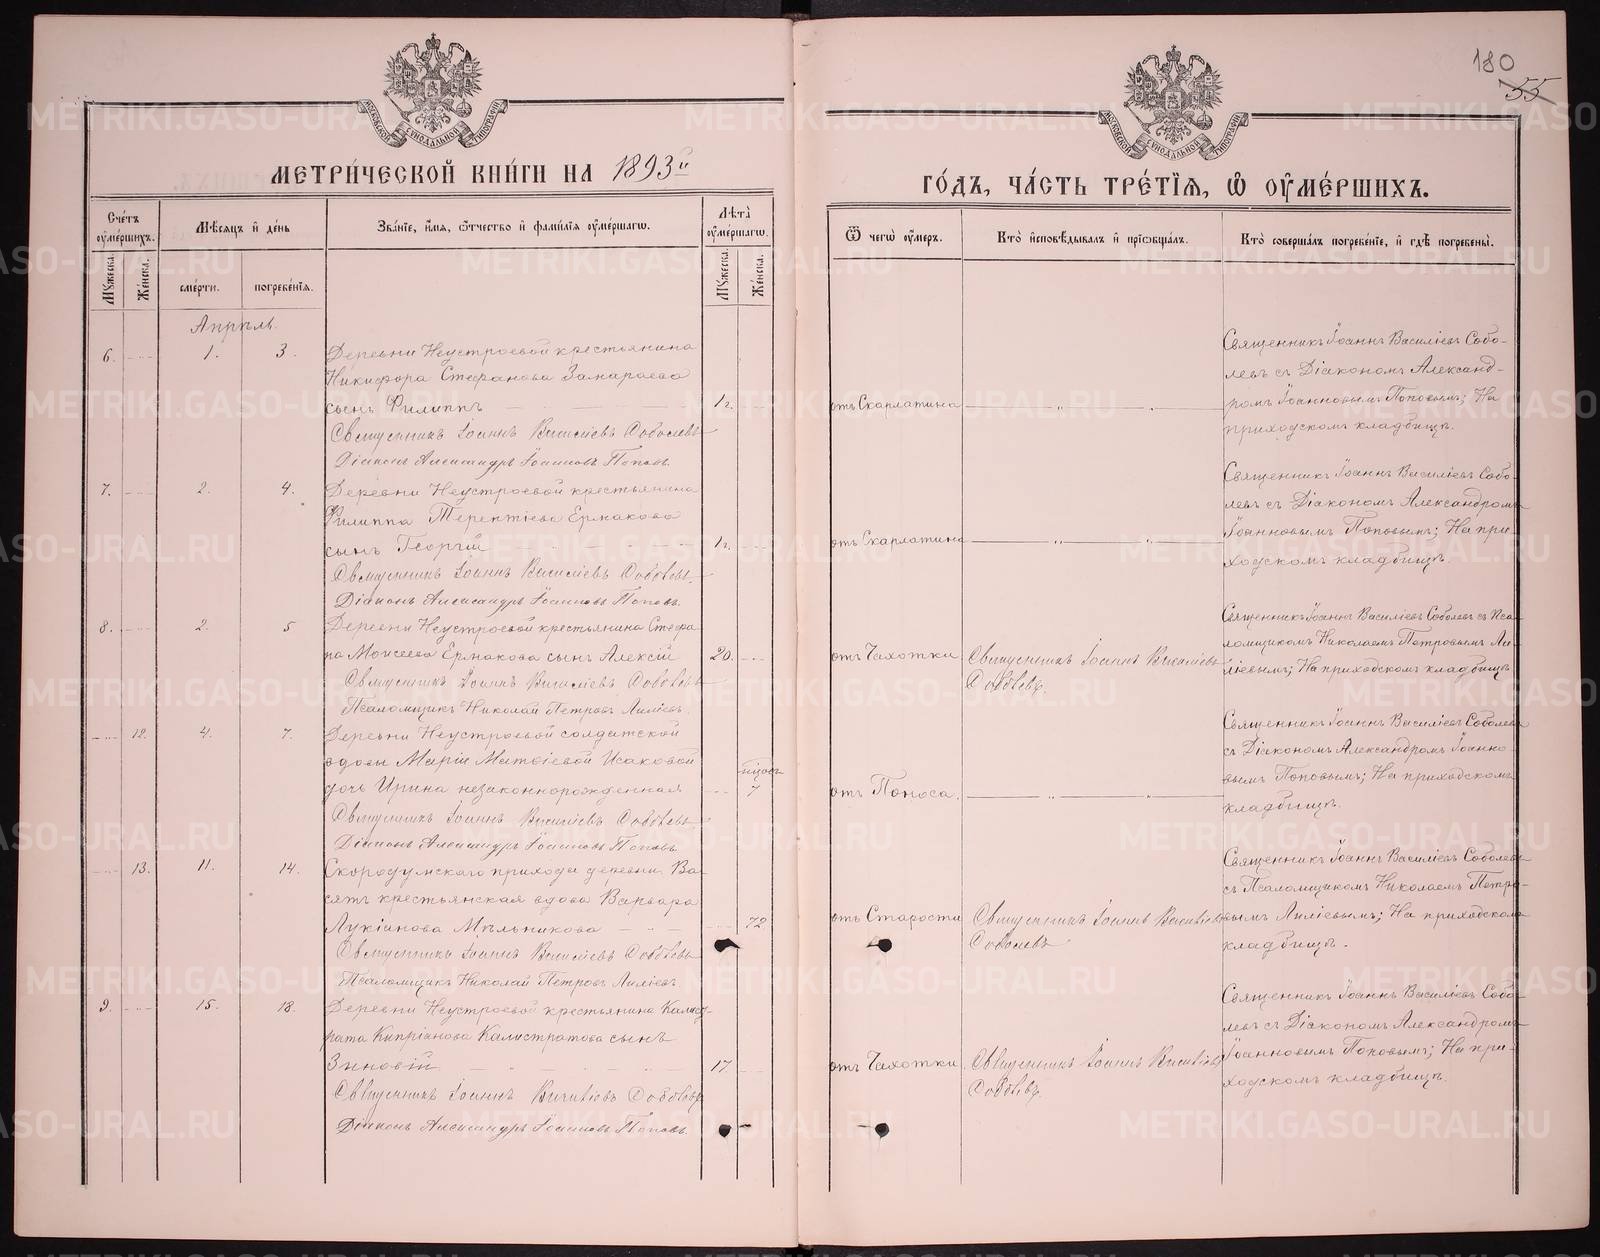 180
55
МЕТРИ́ЧЕСКОЙ КНИ́ГИ НА 1893й
ГО́ДЪ, ЧА́СТЬ ТРЕ́ТІѦ, Ѡ҆ ОУ҆МЕ́РШИХЪ.
Сче́тъ оу҆ме́ршихъ.
Мꙋ́жеска.
Же́нска.
Мѣ́сяцъ и҆ де́нь
сме́рти.
погребе́нїѧ.
Зва́нїе, и҆́мѧ, ѻ҆́тчество и҆ фами́лїѧ оу҆ме́ршагѡ.
Лѣ́та оу҆ме́ршагѡ.
Мꙋ́жеска.
Же́нска.
Ѿ чегѡ̀ оу҆́меръ.
Кто̀ и҆сповѣ́дывалъ и҆ прїѡбща́лъ.
Кто̀ соверша́лъ погребе́нїе, и҆ гдѣ̀ погребены̀.
Апрѣль.
6. 1. 3.
Деревни Неустроевой крестьянина
Никифора Стефанова Замараева
сынъ Филиппъ
1 г.
Священникъ Іоаннъ Василіевъ Соболевъ
Діаконъ Александръ Іоанновъ Поповъ.
отъ Скарлатина
Священникъ Іоаннъ Василіевъ Собо-
левъ съ Діакономъ Александ-
ромъ Іоанновымъ Поповымъ; На
приходскомъ кладбищѣ.
7. 2. 4.
Деревни Неустроевой крестьянина
Филиппа Терентіева Ермакова
сынъ Георгій
1 г.
Священникъ Іоаннъ Василіевъ Соболевъ.
Діаконъ Александръ Іоанновъ Поповъ.
отъ Скарлатина
Священникъ Іоаннъ Василіевъ Собо-
левъ съ Діакономъ Александромъ
Іоанновымъ Поповымъ; На при-
ходскомъ кладбищѣ.
8. 2. 5
Деревни Неустроевой крестьянина Стефа
на Моисеева Ермакова сынъ Алексій
20.
Священникъ Іоаннъ Василіевъ Соболевъ
Псаломщикъ Николай Петровъ Лиліевъ.
отъ Чахотки
Священникъ Іоаннъ Василіевъ
Соболевъ.
Священникъ Іоаннъ Василіевъ Соболевъ съ Пса
ломщикомъ Николаемъ Петровымъ Ли-
ліевымъ; На приходскомъ кладбищѣ
12. 4. 7.
Деревни Неустроевой солдатской
вдовы Маріи Матвіевой Исаковой
дочь Ирина незаконнорожденная
7
Священникъ Іоаннъ Василіевъ Соболевъ
Діаконъ Александръ Іоанновъ Поповъ
отъ Поноса.
Священникъ Іоаннъ Василіевъ Соболевъ
съ Діакономъ Александромъ Іоанно-
вымъ Поповымъ; На приходскомъ
кладбищѣ.
13. 11. 14.
Скородумскаго прихода деревни Ва-
сятъ крестьянская вдова Варвара
Лукіанова Мѣльникова
72
Священникъ Іоаннъ Василіевъ Соболевъ
Псаломщикъ Николай Петровъ Лиліевъ
отъ Старости
Священникъ Іоаннъ Василіевъ
Соболевъ
Священникъ Іоаннъ Василіевъ Соболевъ
съ Псаломщикомъ Николаемъ Петро-
вымъ Лиліевымъ; На приходскомъ
кладбищѣ.
9. 15. 18.
Деревни Неустроевой крестьянина Калист-
рата Кипріанова Калистратова сынъ
Зиновій
17.
Священникъ Іоаннъ Василіевъ Соболевъ
Діаконъ Александръ Іоанновъ Поповъ.
отъ Чахотки
Священникъ Іоаннъ Василіевъ
Соболевъ.
Священникъ Іоаннъ Василіевъ Собо-
левъ съ Діакономъ Александромъ
Іоанновымъ Поповымъ; На при-
ходскомъ кладбищѣ.